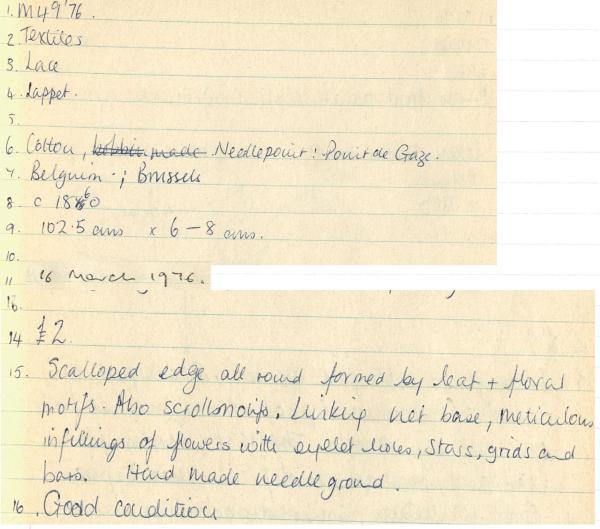 1. M49'76
2. Textiles
3. Lace
4. Lappet.
5.
6. Cotton, bobbin made Needlepoint: Point de Gaze.
7. Belguim.; Brussels
8. c 1860
9. 102.5 cms x 6-8 cms.
10.
11 16 March 1976.
14 £2.
15. Scalloped edge all round formed by leaf + floral
motifs. Also scrollmotifs. Linking net base, meticulous
infillings of flowers with eyelet holes, stars, grids and
bars. Hand made needleground.
16. Good condition